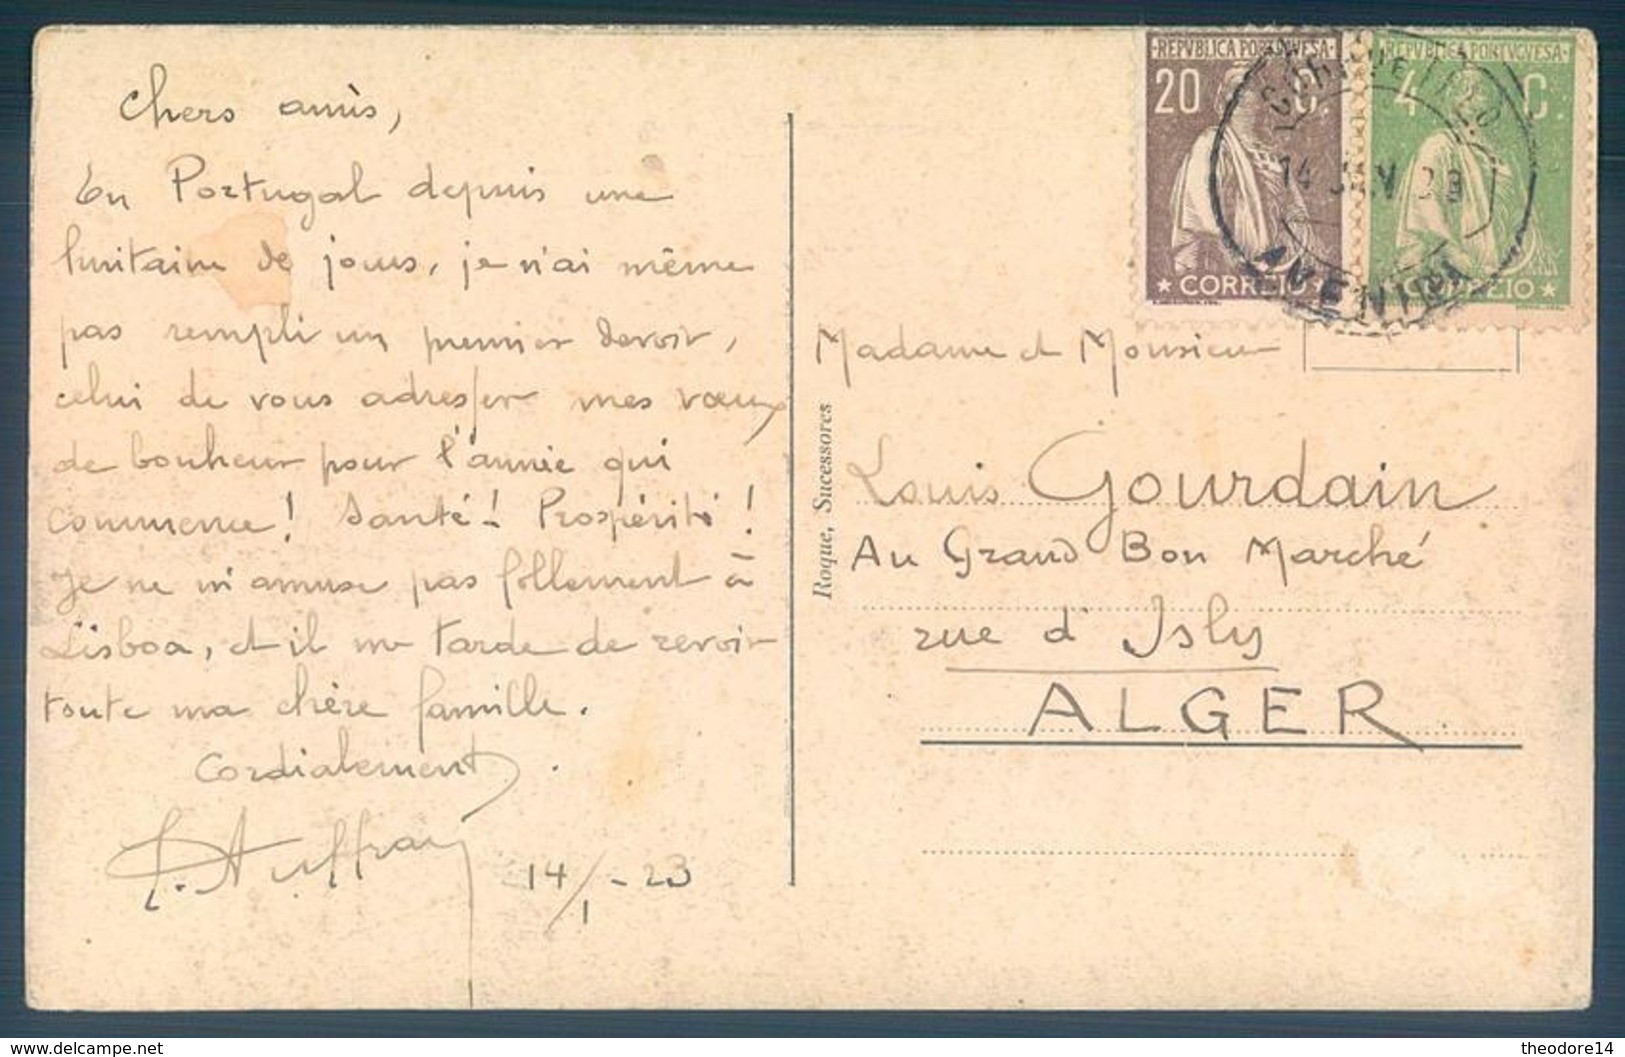 Chers amis,
En Portugal depuis une
huitaine de jours, je n'ai même
pas rempli un premier devoir,
celui de vous adresser mes vœux
de bonheur pour l'année qui
commence! Santé! Prospérité!
Je ne m'amuse pas follement à
Lisboa, et il me tarde de revoir
toute ma chère famille.
Cordialement.
Auffray
14/1-23
Roque, Sucessores
REPVBLICA PORTVGVESA
20 C.
CORREIO
REPVBLICA PORTVGVESA
4 C.
CORREIO
14 JAN 23
AVENIDA
Madame et Monsieur
Louis Gourdain
Au Grand Bon Marché
rue d'Isly
ALGER
www.delcampe.net
theodore14